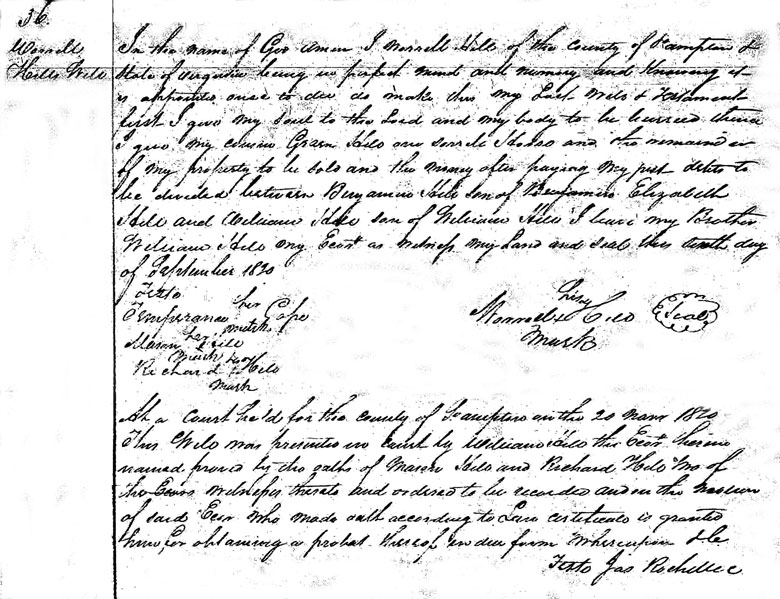 36
Worrell
Hills Will
In the name of God Amen I Worrell Hill of the County of Hampton &
State of Virginia being in perfect mind and memory and knowing it
is appointed once to die do make this my Last Will & Testament
first I give my soul to the Lord and my body to be burried then
I give my cousin Hill one sorrel Horse and the remainder
of my property to be sold and the money after paying my just debts to
be divided between Benjamin Hill son of Benjamin Elizabeth
Hill and William Hill son of William Hill I leave my Brother
William Hill my Ecor as witness my Hand and seal this tenth day
of September 1820
Teste
Temperance her Cope
mark
Mason her Hill
mark
Richard his Hill
mark
his
Worrell x Hill Seal
Mark
At a Court held for the County of Hampton on the 20 1820
This Will was presented in Court by William Hill the Ecor herein
named proved by the oaths of Mason Hill and Richard Hill two of
the witnesses thereto and ordered to be recorded and on the motion
of said Ecor who made oath according to Law certificate is granted
him for obtaining a probat thereof in due form Whereupon &c
Teste Jas Rochelle c